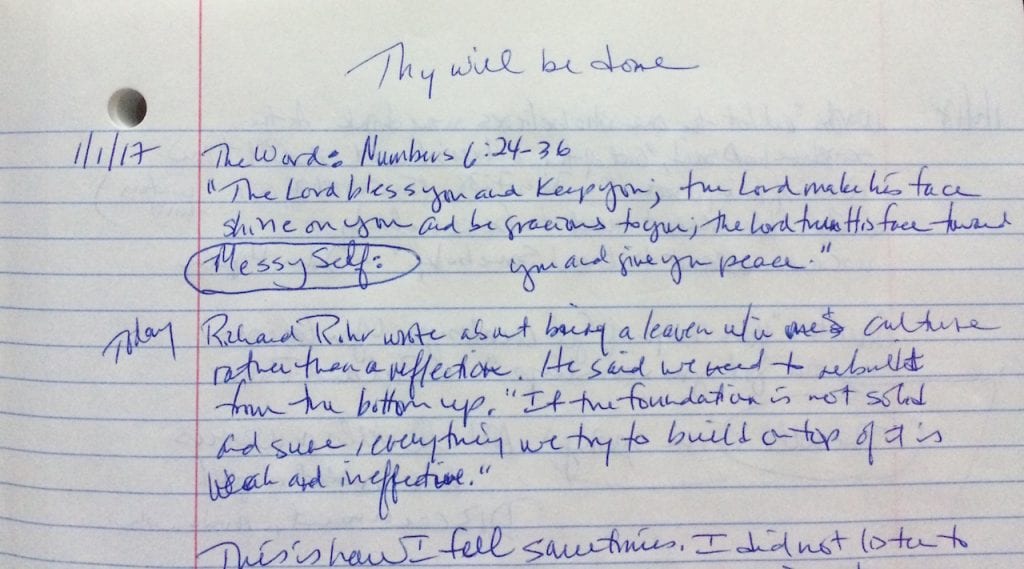 Thy will be done
1/1/17 The Word: Numbers 6:24-36
"The Lord bless you and keep you; the Lord make his face
shine on you and be gracious to you; the Lord turn His face toward
Messy Self: you and give you peace."
Today Richard Rohr wrote about being a leaven w/in one's culture
rather than a reflection. He said we need to rebuild
from the bottom up. "If the foundation is not solid
and sure, everything we try to build on top of it is
weak and ineffective."
This is how I fell sometimes. I did not listen to